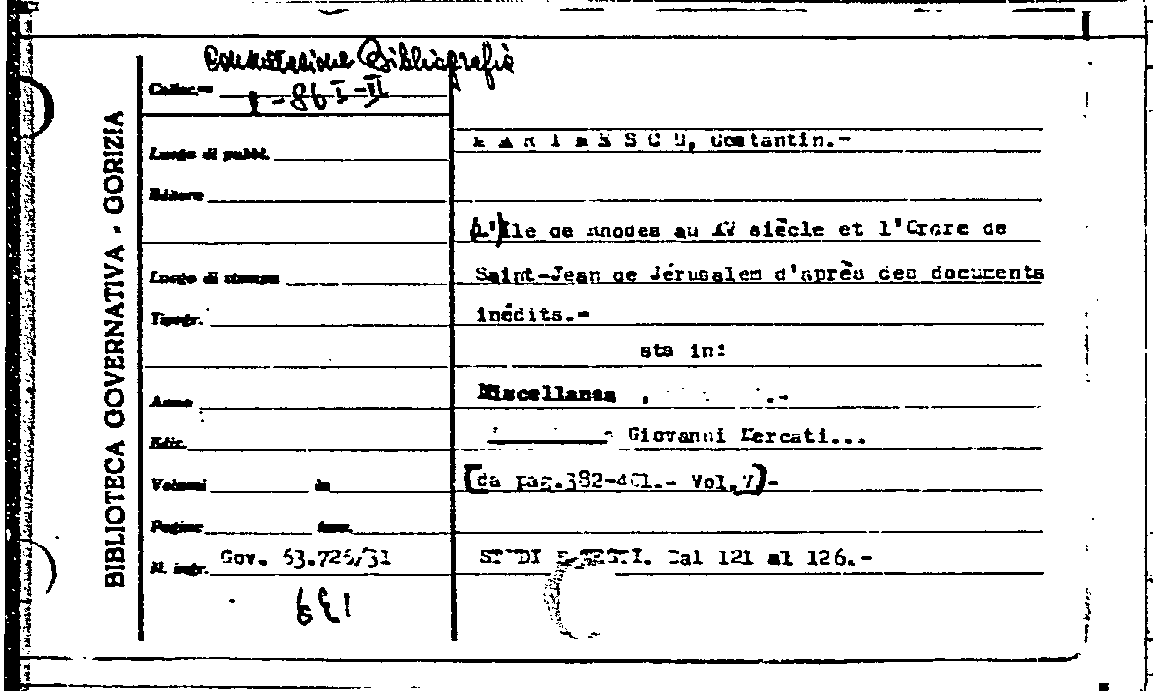 BIBLIOTECA GOVERNATIVA - GORIZIA
Consultazione Bibliografia
Colloc.
I-II
Luogo di pubbl.
Editore
Luogo di stampa
Tipogr.
Anno
Ediz.
Volumi in
Pagine
N. ingr. Gov. 53.726/31
MARINESCU, Costantin.-
(L')Ile de Rhodes au XV siècle et l'Ordre de
Saint-Jean de Jérusalem d'après des documents
inédits.-
sta in:
Miscellanea
Giovanni Mercati...
[da pag.382-401.- Vol.V]-
STUDI E TESTI. Dal 121 al 126.-